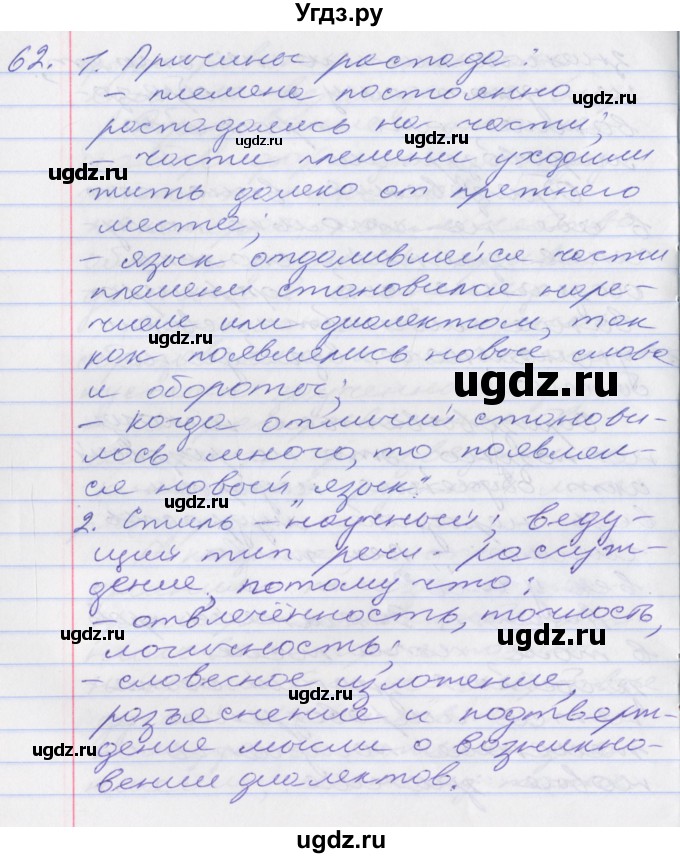 Угдз.ру
62. 1. Причины распада:
– племена постоянно
распадались на части;
– части племени уходили
жить далеко от прежнего
места;
– язык отдалившейся части
племени становился наре-
чием или диалектом, так
как появлялись новые слова
и обороты;
– когда отличий станови-
лось много, то появлял-
ся новый язык.
2. Стиль – научный; веду-
щий тип речи – рассуж-
дение, потому что:
– отвлечённость, точность,
логичность;
– словесное изложение,
разъяснение и подтверж-
дение мысли о возникно-
вении диалектов.
ugdz.ru
ugdz.ru
ugdz.ru
ugdz.ru
ugdz.ru
ugdz.ru
ugdz.ru
ugdz.ru
ugdz.ru
ugdz.ru
ugdz.ru
ugdz.ru